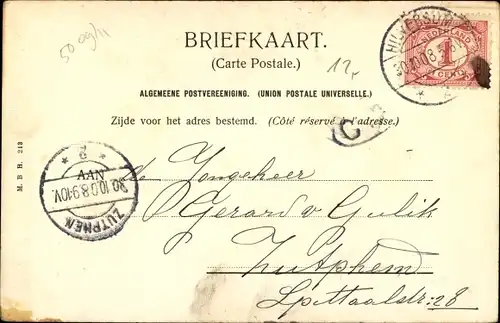 50 09/11
BRIEFKAART.
(Carte Postale.)
12,-
HILVERSUM
30.10.08
NEDERLAND
1
CENT
ALGEMEENE POSTVEREENIGING. (UNION POSTALE UNIVERSELLE.)
Zijde voor het adres bestemd. (Côté réservé à l'adresse.)
C
M. B. R. 213
2
AAN
30.10.08.9-10V.
ZUTPHEN
Jongeheer
Gerard v Gulik
Zutphen
Spittaalstr: 28